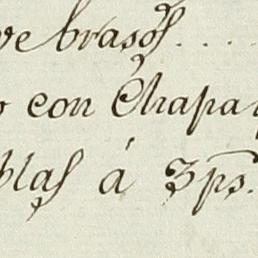 ve brasos....
con Chapa
blas á 3 ps.